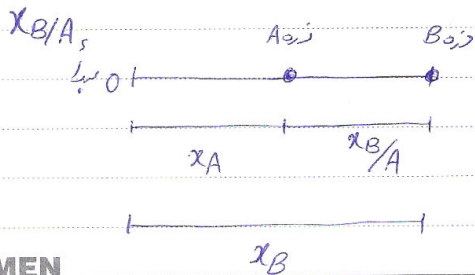 x_B/A,
ذره A ذره B
مبدا O
x_A x_B/A
x_B
MEN